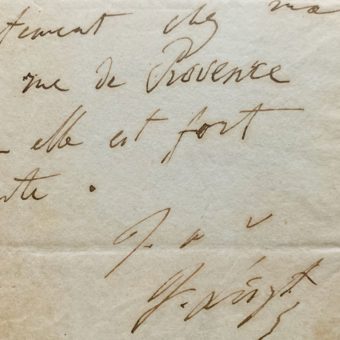 tement chez ma
rue de Provence
elle est fort
te.
t. à v.
F. Liszt